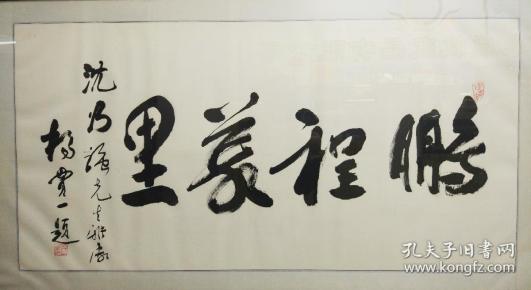 鹏程萬里
沈乃强先生雅属
杨贵一题
孔夫子旧书网
www.kongfz.com